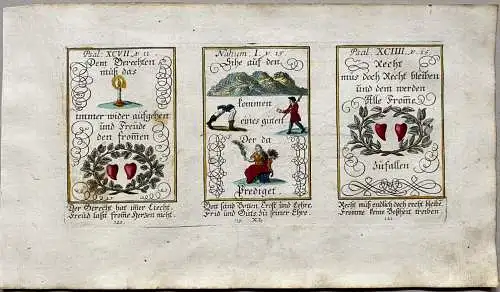 Psal. XCVII. v. 11.
Dem Gerechten
muß das
immer wider aufgehen
und Freude
den frommen
Der Gerecht hat imer Liecht.
Freud laßt fromе Hertzen nicht.
120.
Nahum. I. v. 15.
Sihe auf den
kommen
eines guten
Der da
Prediget.
Gott sand Botten, Trost und Lehre,
Frid und Guts, zu seiner Ehre.
XI.
Psal. XCIIII. v. 15.
Recht
mus doch Recht bleiben
und dem werden
Alle Fromе
zufallen
Recht muß endlich doch recht bleibe.
Fromme keine Boßheit treiben